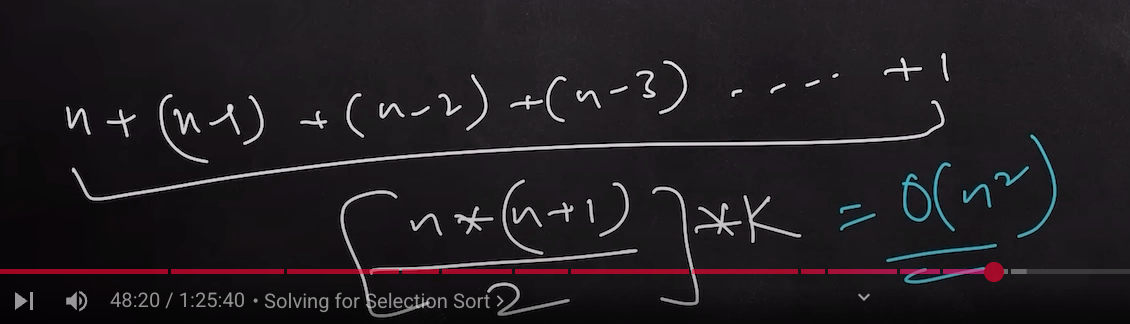 n + (n-1) + (n-2) + (n-3) ..... + 1
[n*(n+1)/2]*K = O(n²)
48:20 / 1:25:40 • Solving for Selection Sort >